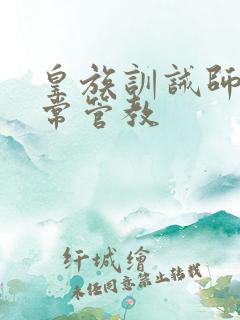 皇族訓誡師
常管教
纤城繪
未经同意禁止转载